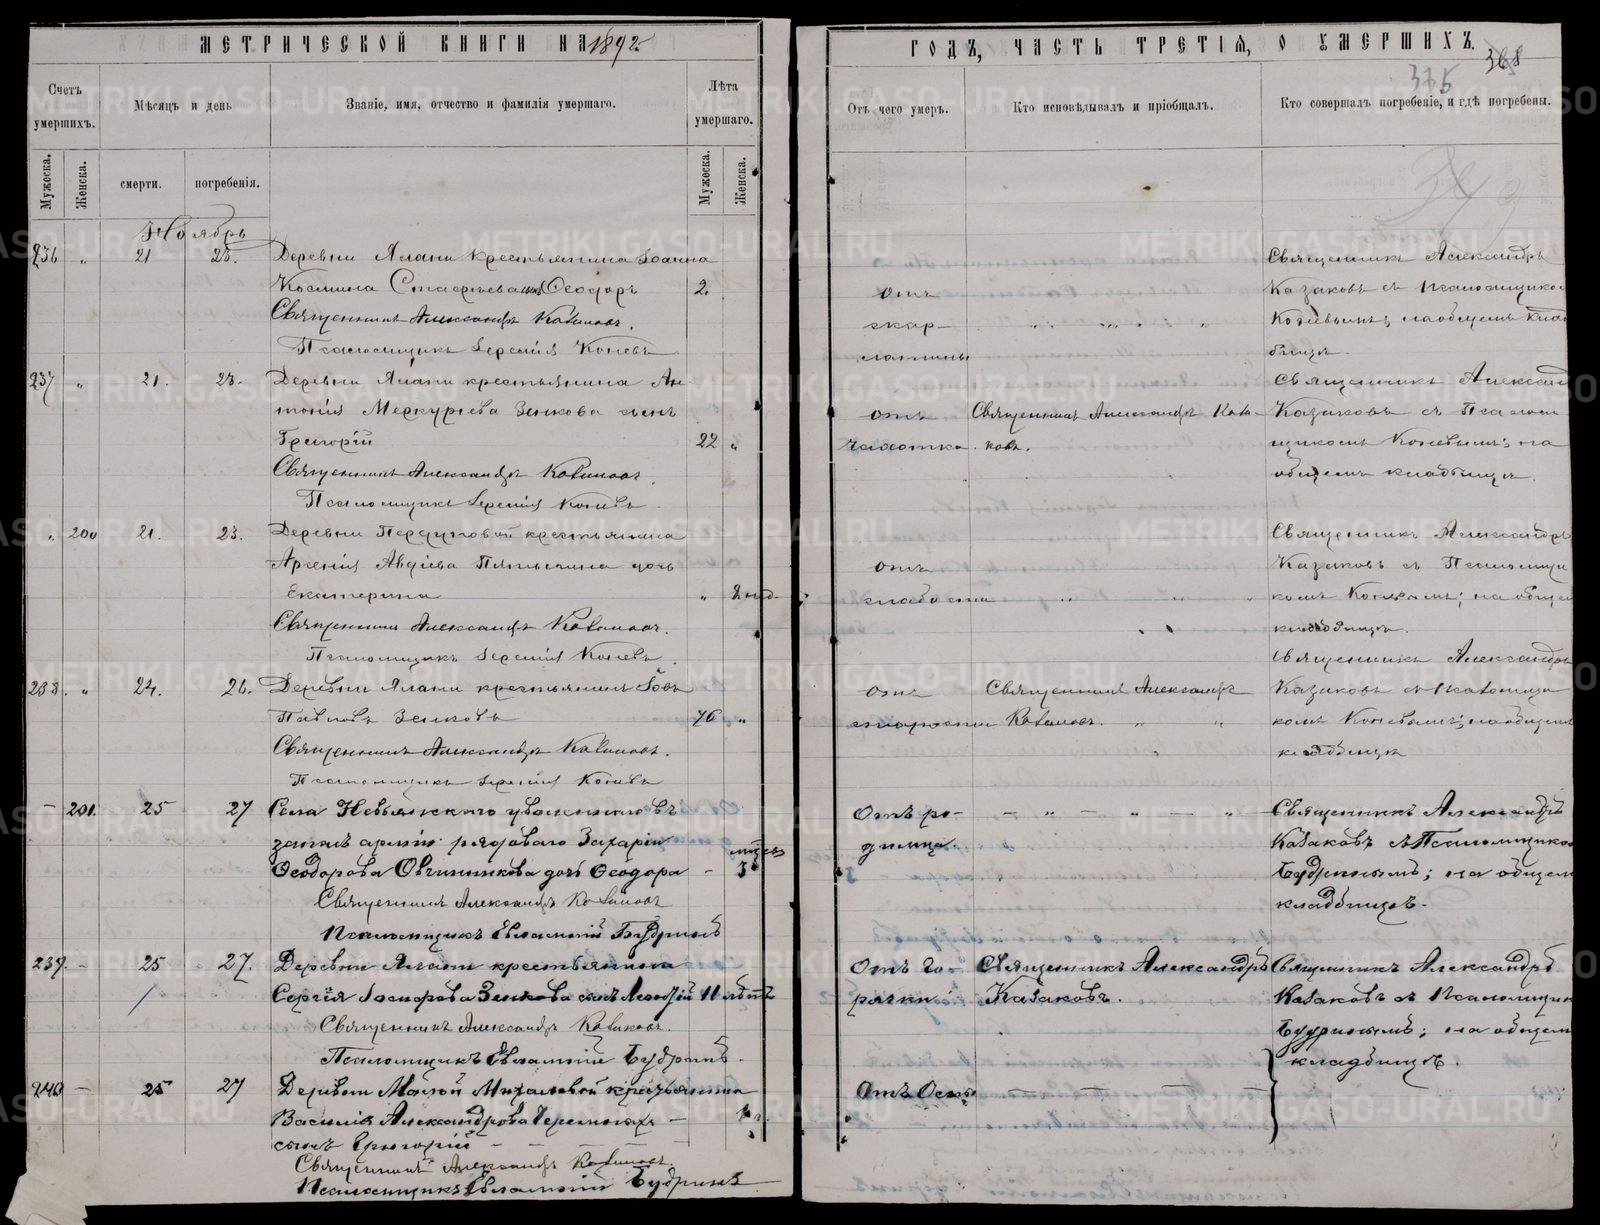 МЕТРИЧЕСКОЙ КНИГИ НА 1892
Счетъ умершихъ.
Мѣсяцъ и день
Званіе, имя, отчество и фамилія умершаго.
Лѣта умершаго.
Мужеска.
Женска.
смерти.
погребенія.
Мужеска.
Женска.
Ноябрь
236 " 21 23. Деревни Ялани крестьянина Іоанна
Космина сынъ Ѳеодоръ 2.
Священникъ Александръ Казаковъ.
Псаломщикъ Іеремія Коневъ
237 " 21. 23. Деревни Ялани крестьянина Ан
тонія Меркурьева Зенкова сынъ
Григорій 22 "
Священникъ Александръ Казаковъ.
Псаломщикъ Іеремія Коневъ
" 200 21. 23. Деревни крестьянина
Арсенія Авдіева дочь
Екатерина " 2 нед.
Священникъ Александръ Казаковъ.
Псаломщикъ Іеремія Коневъ.
238. " 24. 26. Деревни Ялани крестьянинъ Іовъ
Павловъ Зенковъ 76 "
Священникъ Александръ Казаковъ.
Псаломщикъ Іеремія Коневъ
– 201. 25 27 Села Невьянскаго уволеннаго въ
запасъ арміи рядоваго Захарія
мѣсяц
Ѳеодорова Овчинникова дочь Ѳеодора – 3
Священникъ Александръ Казаковъ
Псаломщикъ Евлампій Будринъ
239. – 25 27. Деревни Ялани крестьянина
Сергія Зенкова сынъ 11 лѣтъ
Священникъ Александръ Казаковъ.
Псаломщикъ Евлампій Будринъ.
240 – 25 27 Деревни Малой крестьянина
Василія Александрова
сынъ Григорій
Священникъ Александръ Казаковъ.
Псаломщикъ Евлампій Будринъ
ГОДЪ, ЧАСТЬ ТРЕТІЯ, О УМЕРШИХЪ.
375
368
Отъ чего умеръ.
Кто исповѣдывалъ и пріобщалъ.
Кто совершалъ погребеніе, и гдѣ погребены.
Священникъ Александръ
отъ Казаковъ съ Псаломщикомъ
скар- Коневымъ; на общемъ клад
латины бищѣ.
Священникъ Александ
отъ Священникъ Александръ Каза- Казаковъ съ Псалом
чахотки. ковъ. щикомъ Коневымъ; на
общемъ кладбищѣ.
Священникъ Александръ
отъ Казаковъ съ Псаломщи
слабости комъ Коневымъ; на общем
кладбищѣ.
Священникъ Александръ
отъ Священникъ Александръ Казаковъ съ Псаломщи
старости Казаковъ. комъ Коневымъ; на общемъ
кладбищѣ
Отъ ро- Священникъ Александръ
димца. Казаковъ съ Псаломщико
Будринымъ; на общем
кладбищѣ.
Отъ го- Священникъ Александръ Священникъ Александръ
рячки Казаковъ. Казаковъ съ Псаломщик
Будринымъ; на общем
кладбищѣ.
Отъ Оспы
METRIKI.GASO-URAL.RU